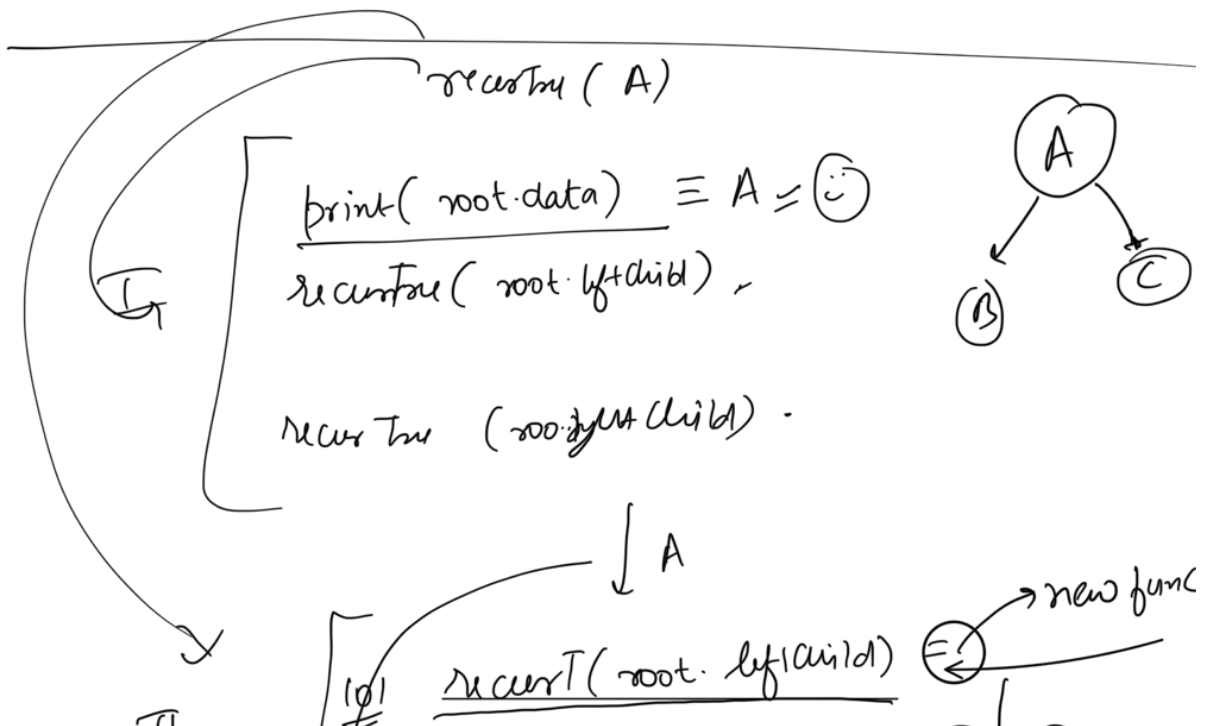 recurTree ( A )
A
print( root.data) ≡ A = 
I
recursTree ( root.leftChild) ,
B
C
recurTree (roo.rightChild) .
A
new func
recurT( root. leftChild) =
II